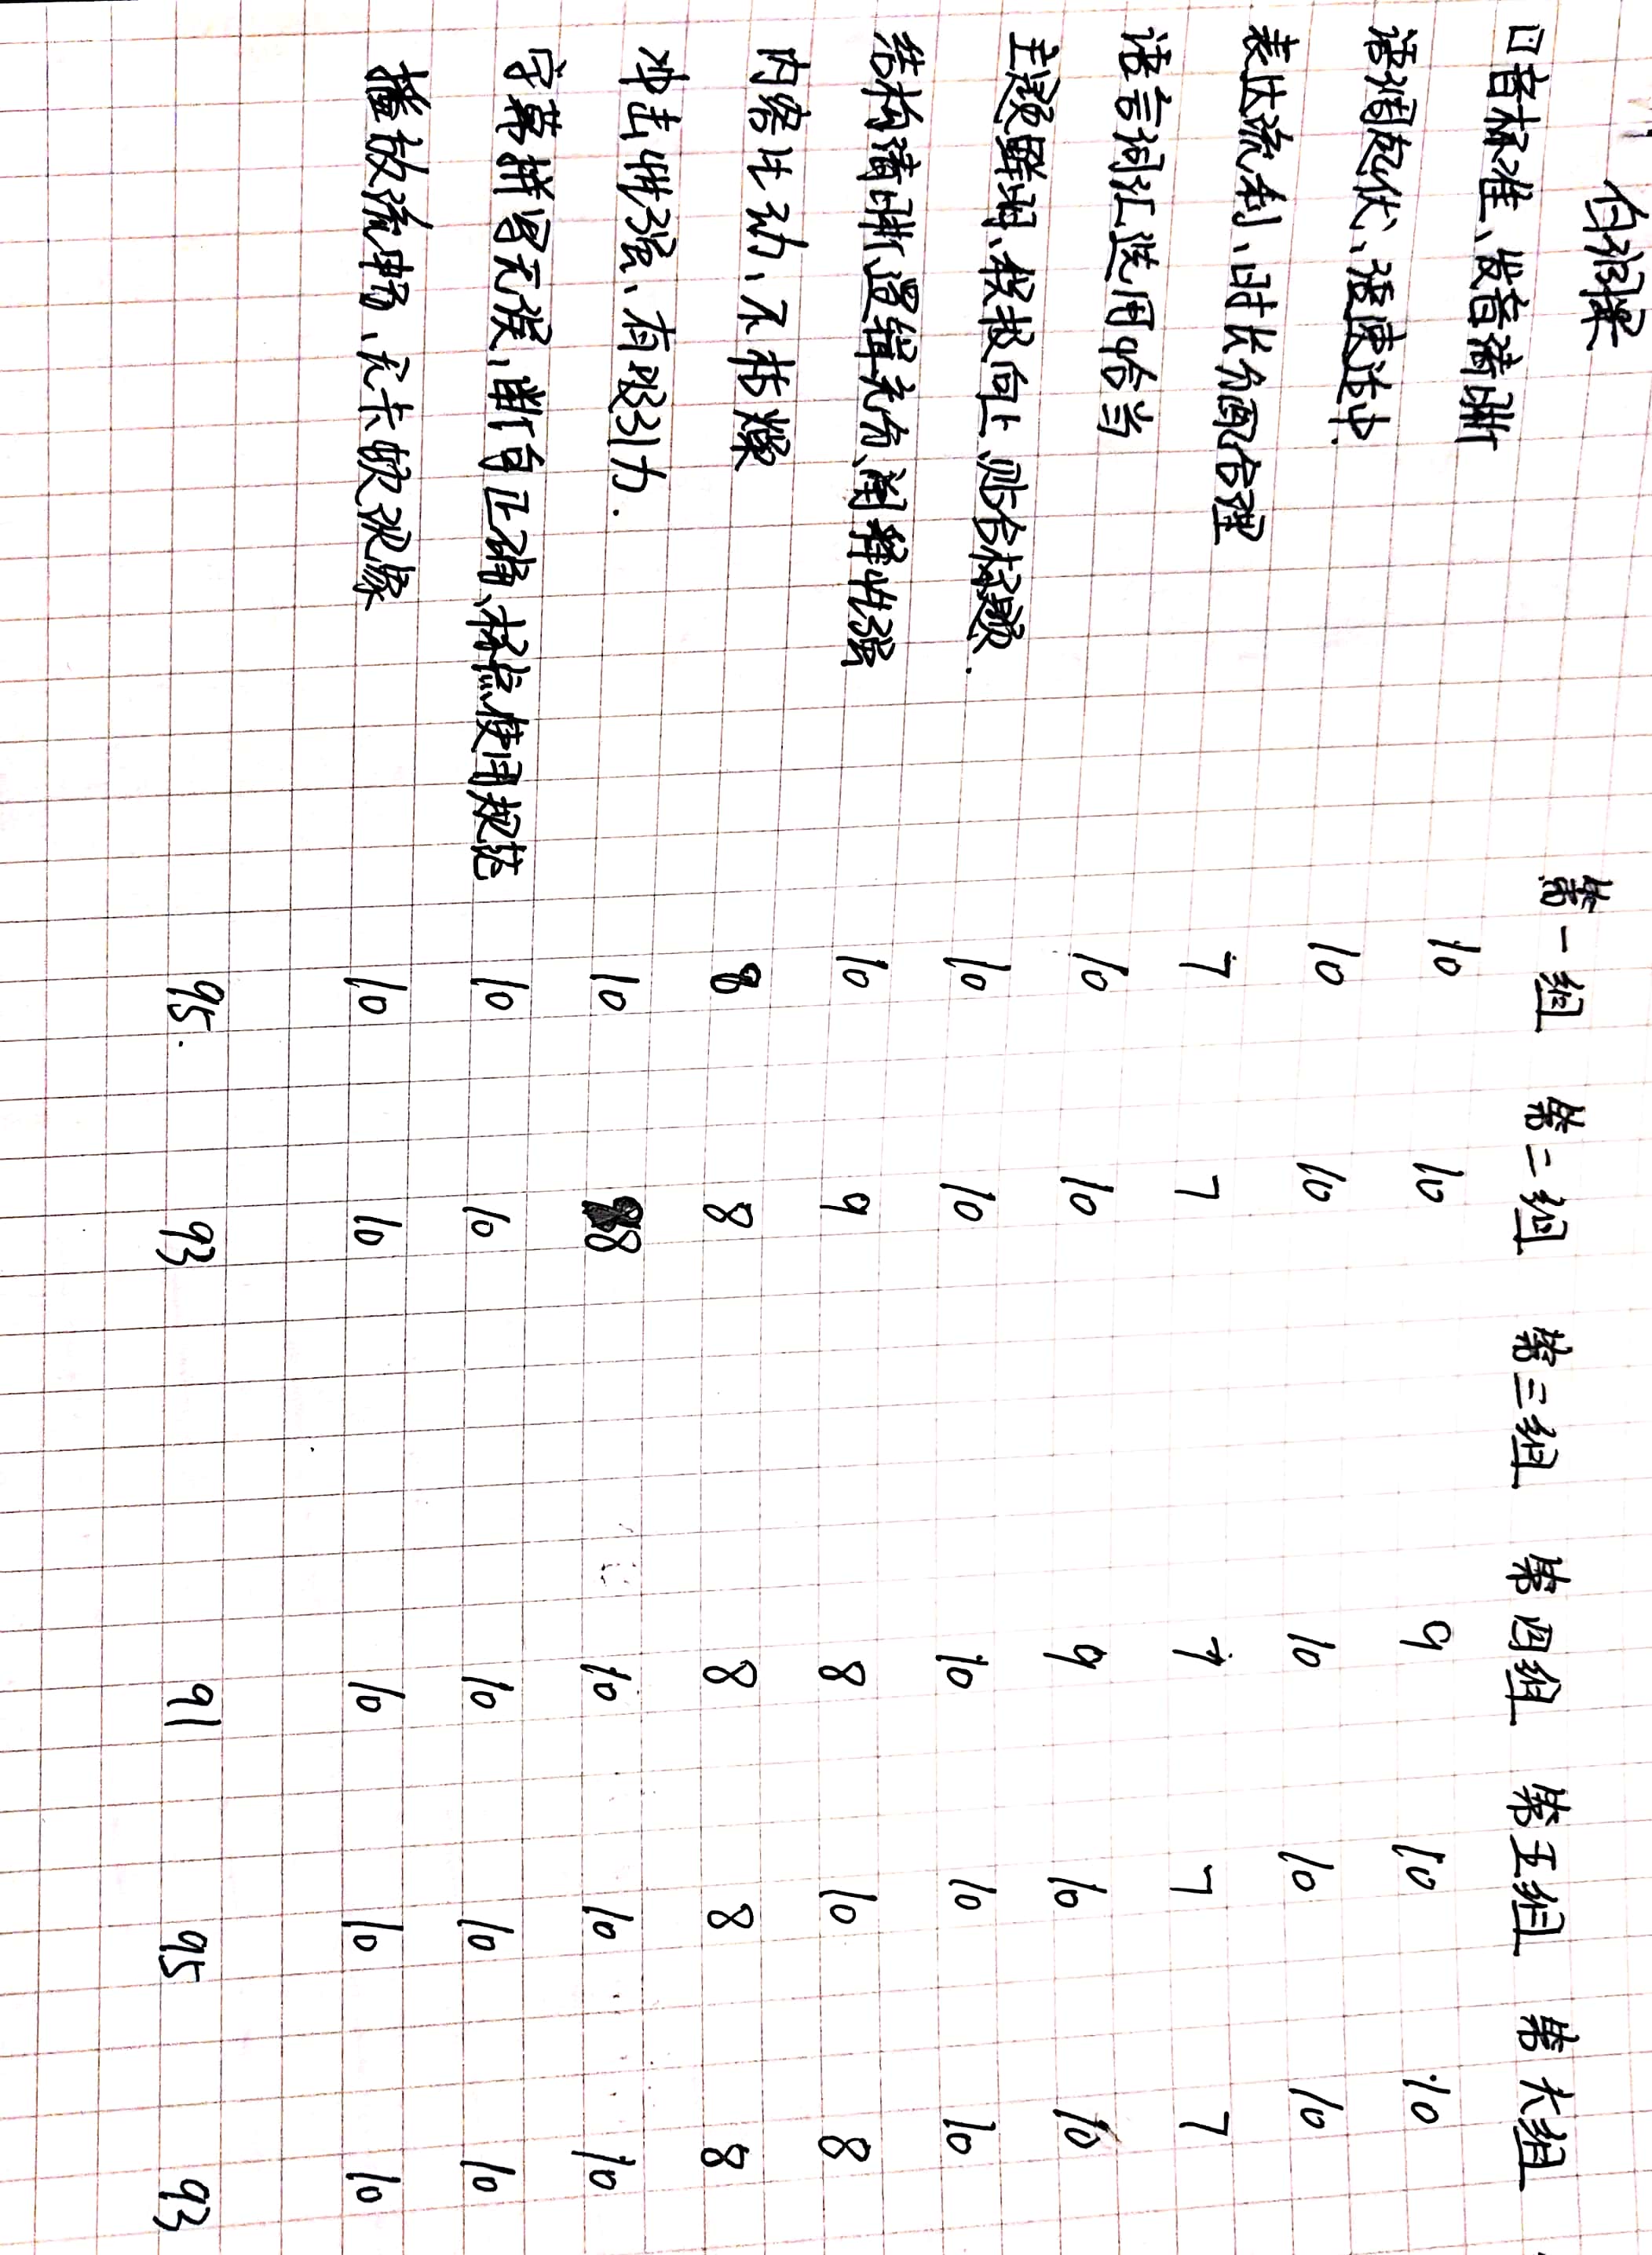 第一组 第二组 第三组 第四组 第五组 第六组
口音标准、发音清晰 10 10 9 10 10
语调起伏、语速适中 10 10 10 10 10
表达流利、时长分配合理 7 7 7 7 7
语言词汇选用恰当 10 10 9 10 10
主题鲜明、积极向上 贴合标题. 10 10 10 10 10
结构清晰逻辑充分、阐释性强 10 9 8 10 8
内容生动、不枯燥 8 8 8 8 8
冲击性强、有吸引力. 10 8 10 10 10
字幕拼写无误、断句正确、标点使用规范 10 10 10 10 10
播放流畅、无卡顿现象 10 10 10 10 10
95. 93 91 95 93